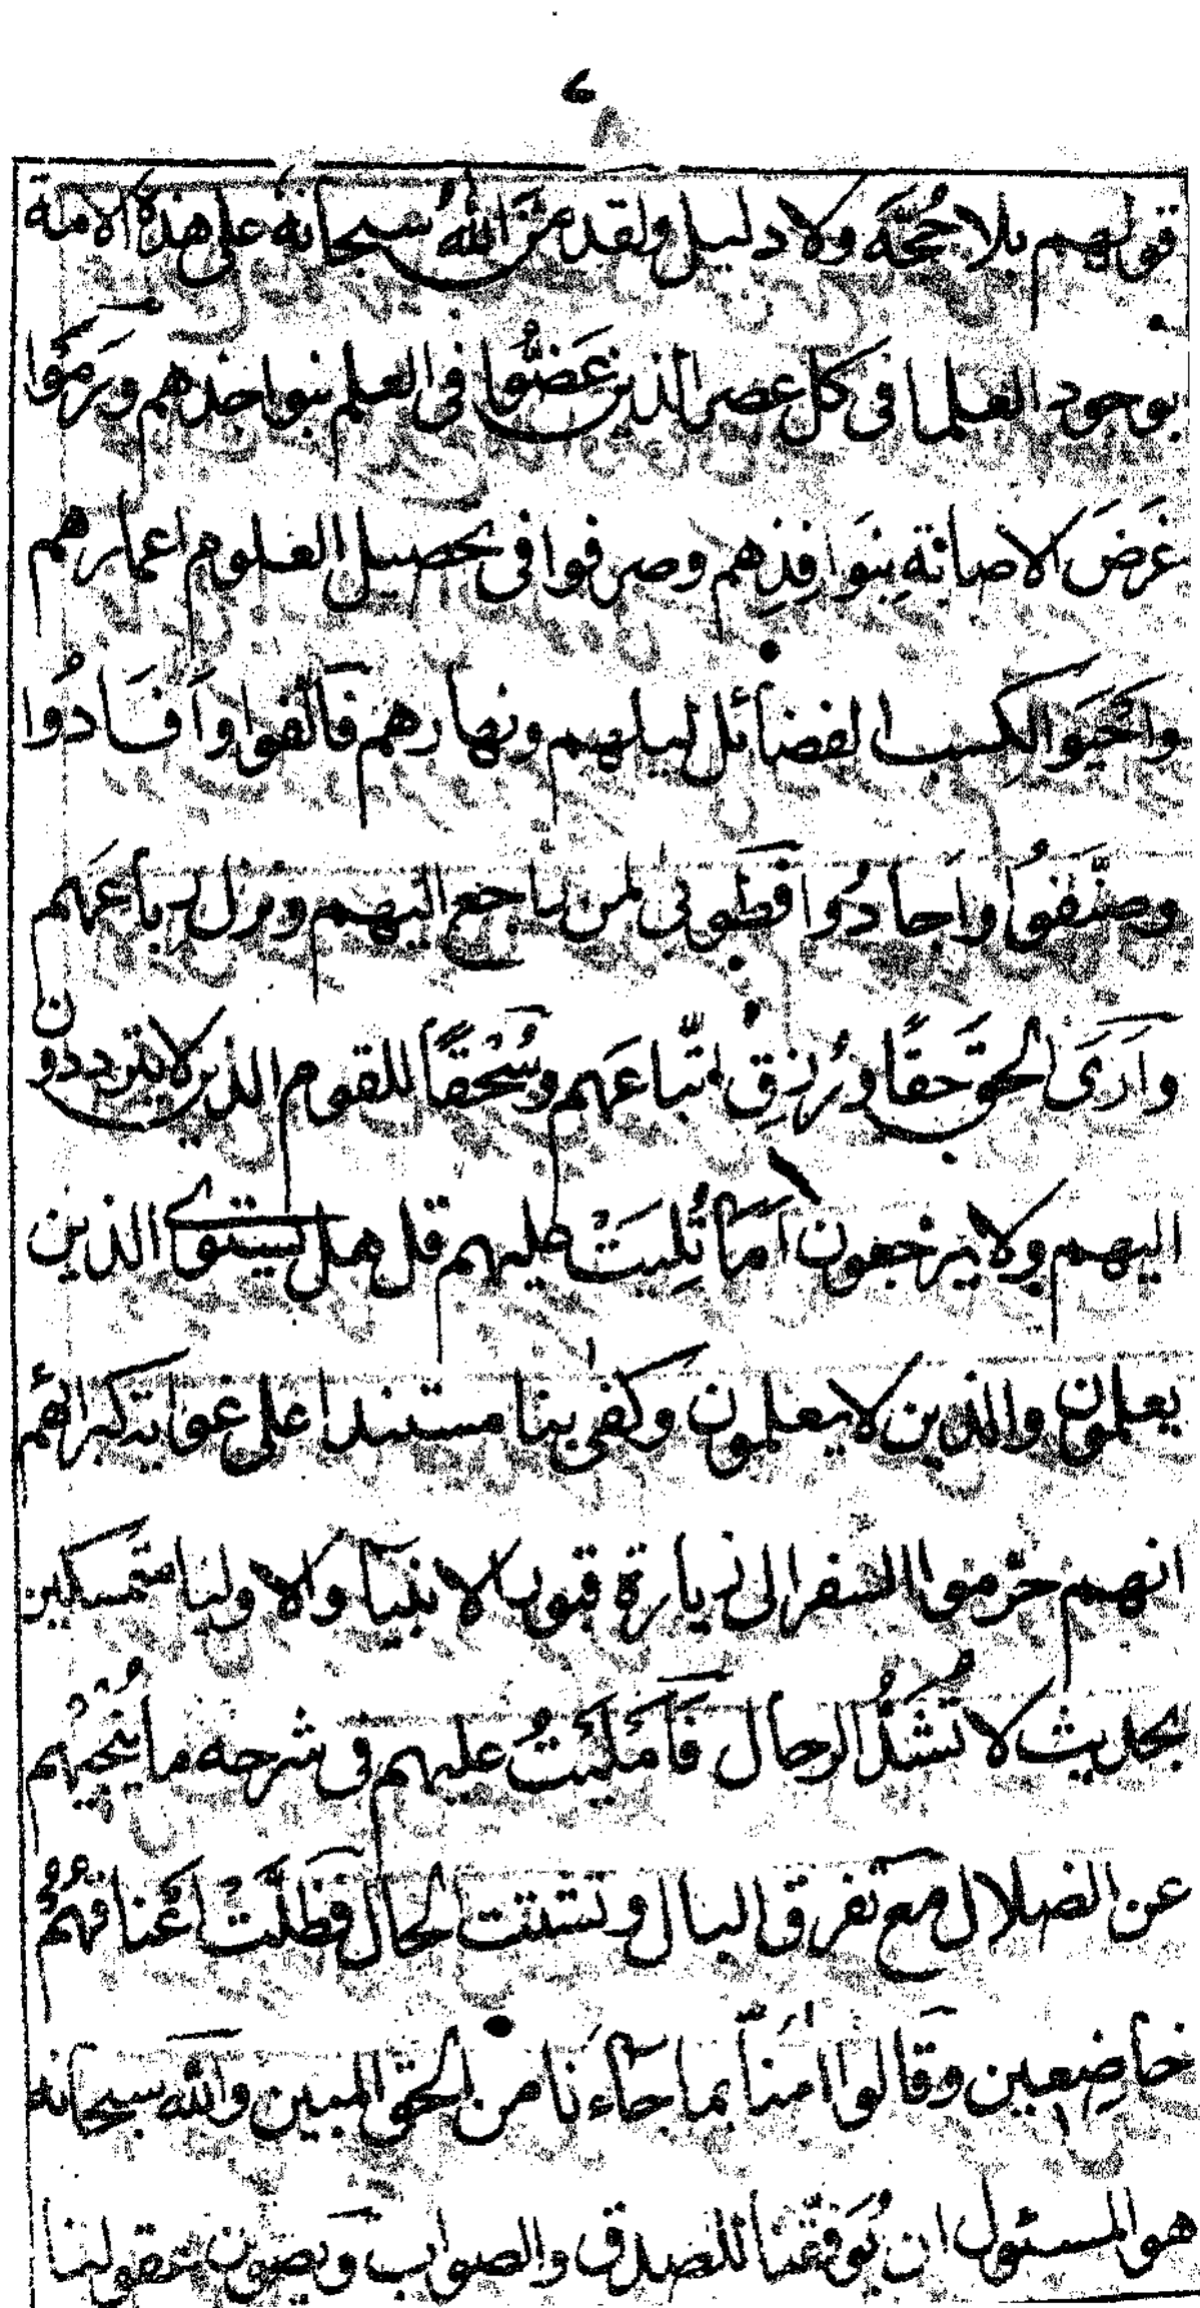 قولهم بلا حُجَّة ولا دليل ولقد مَنَّ اللهُ سُبحانهُ على هذه الامة
بوجود العلما فى كل عصر الذين عَضُّوا فى العلم بنواجذهم ورَمَوا
غَرَضَ الاصابةِ بنَوافِذِهم وصرفوا فى تحصيل العلوم اعمارهم
واَحْيَوا لكسب الفضائل ليلهم ونهارهم فاَلّفوا واَفَادُوا
وصَنَّفوُا واَجادُوا فطَوبى لمن راجع اليهم ونزل برباعهم
واَرَى الحقّ حَقًا ورُزِقَ اتّباعَهم وسُحْقًا للقوم الذين لا يترددون
اليهم ولا يرجعون اَمَا تُلِيَتْ عليهم قل هل يستوى الذين
يعلمون والذين لا يعلمون وكفى بنا مستندا على غواية كبرائهم
انهم حَرّموا السفر الى زيارة قبور الانبيآ والاوليا متمسكين
بحديث لا تُشَدُّ الرحال فَاَمْلَيْتُ عليهم فى شرحه ما يُنْجِيْهم
عن الضلال مع تفرق البال وتشتت الحال فظَلَّتْ اعْناقهُمْ
خاضِعين وقَالوا اٰمَنّا بما جآءَنا من الحق المبين واللّه سبحانه
هو المسئول ان يُوَفِّقنا للصدق والصواب ويصون عقولنا